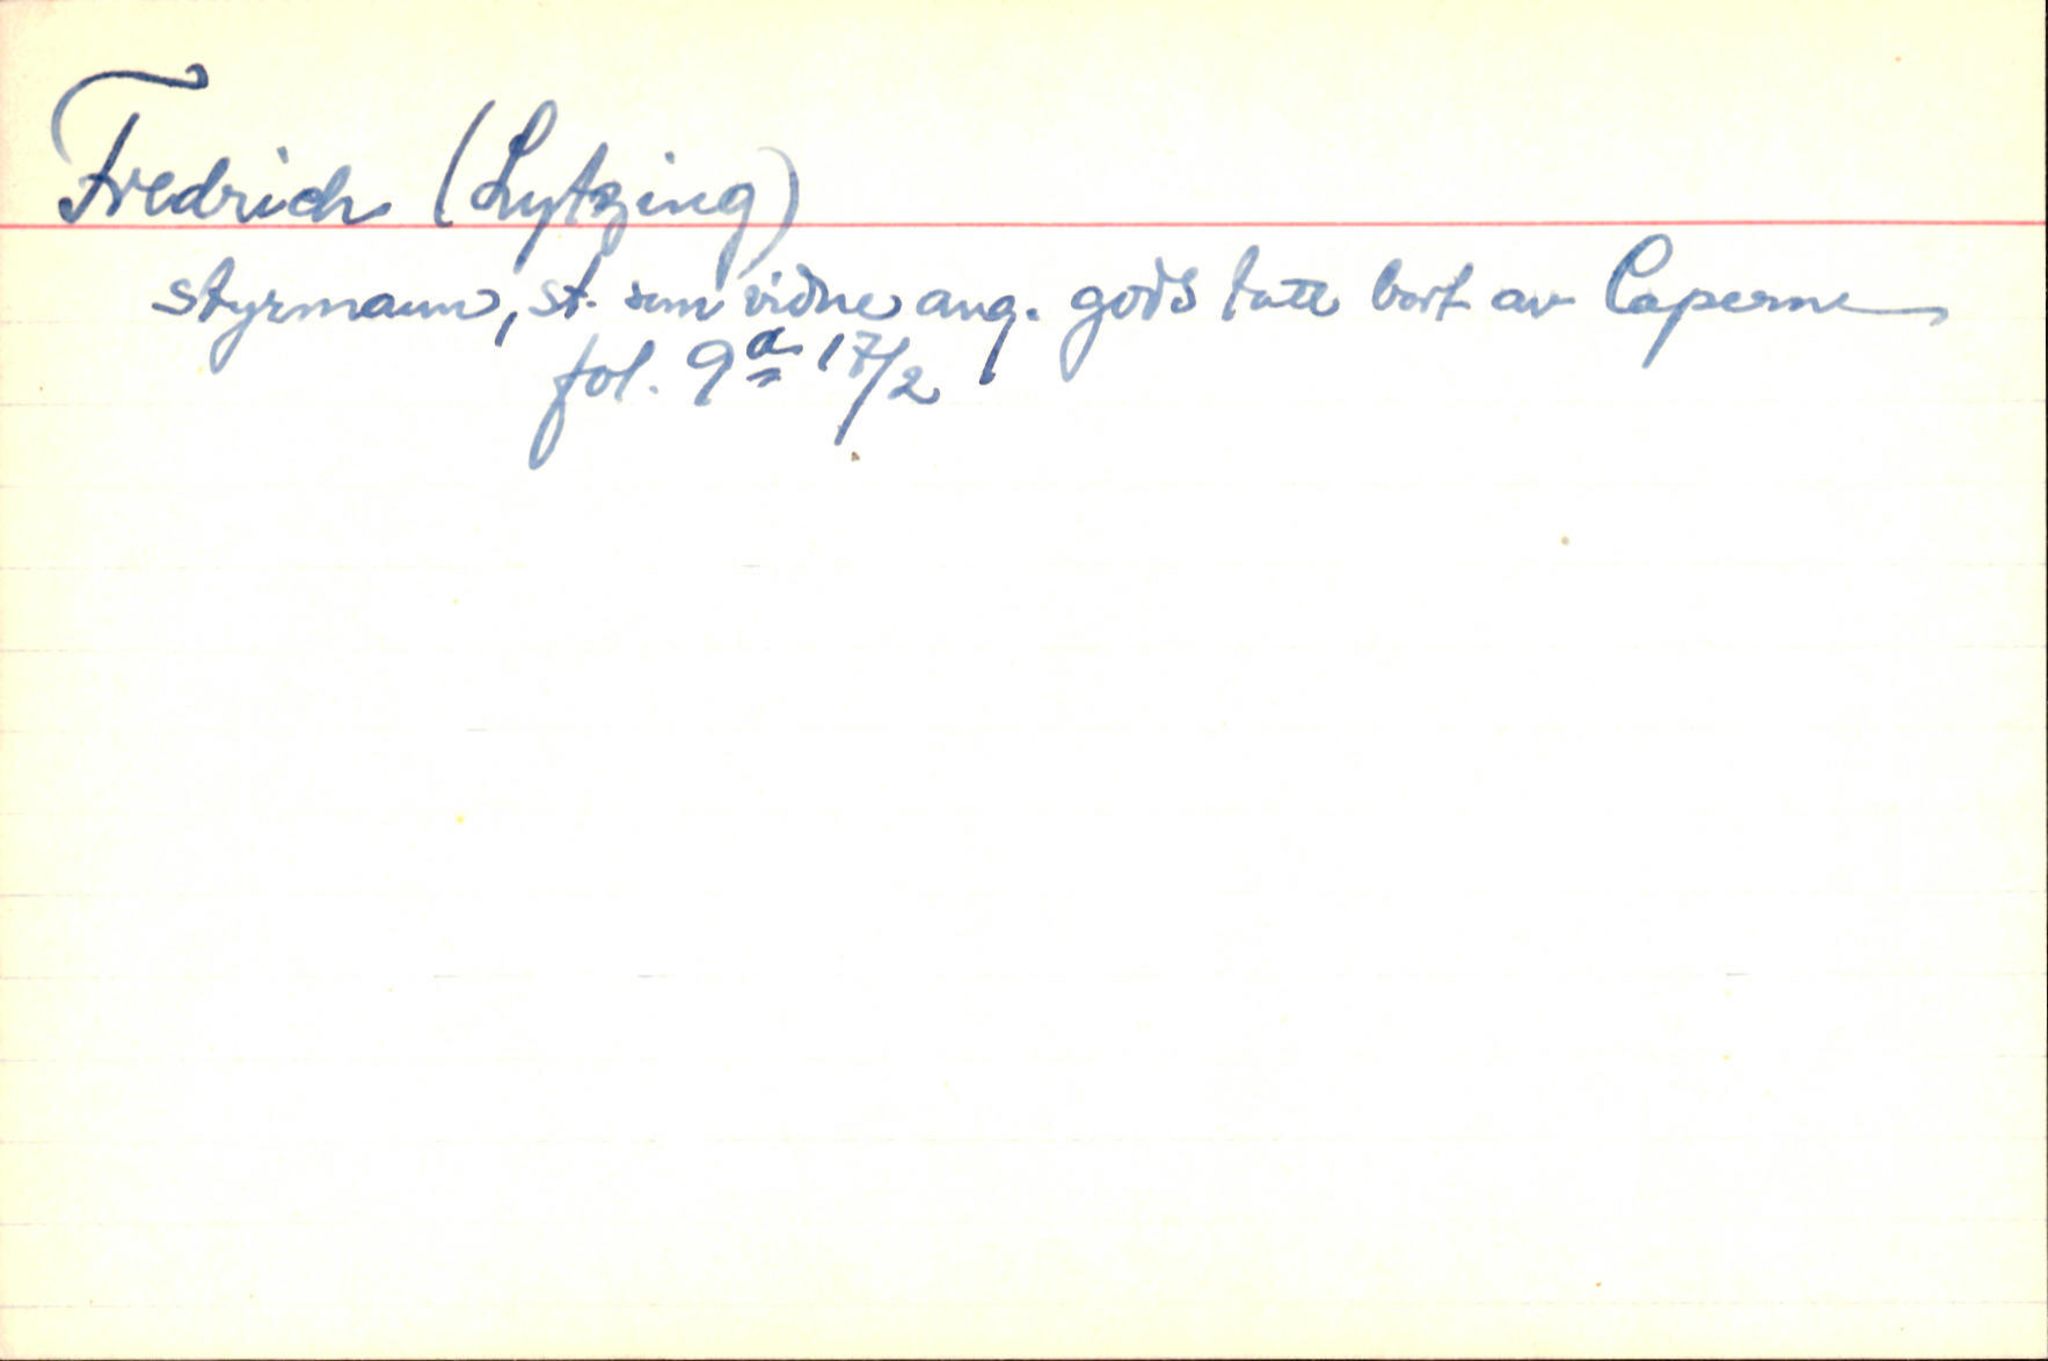 Fredrich (Lytzing)
styrmann, st. som vidne ang. gods tatt bort av Caperne
fol. 9a 17/2